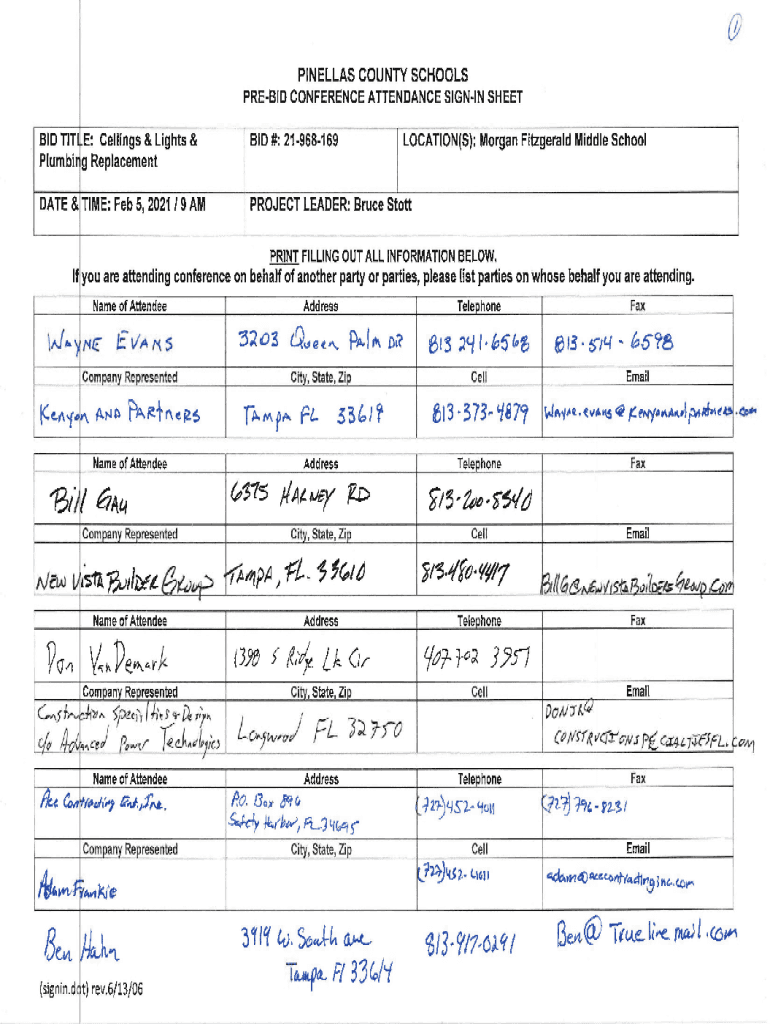 1
PINELLAS COUNTY SCHOOLS
PRE-BID CONFERENCE ATTENDANCE SIGN-IN SHEET
BID TITLE: Ceilings & Lights & Plumbing Replacement
BID #: 21-968-169
LOCATION(S): Morgan Fitzgerald Middle School
DATE & TIME: Feb 5, 2021 / 9 AM
PROJECT LEADER: Bruce Stott
PRINT FILLING OUT ALL INFORMATION BELOW.
If you are attending conference on behalf of another party or parties, please list parties on whose behalf you are attending.
Name of Attendee Address Telephone Fax
WAYNE EVANS 3203 Queen Palm DR 813 241-6568 813-514-6598
Company Represented City, State, Zip Cell Email
Kenyon AND PARtneRS TAmpA FL 33619 813-373-4879 Wayne.evans@Kenyonandpartners.com
Name of Attendee Address Telephone Fax
Bill GAY 6375 HARNEY RD 813-200-8340
Company Represented City, State, Zip Cell Email
NEW VISTA BUILDER GROUP TAMPA, FL. 33610 813-480-4417 BillG@NEWVISTABUILDERSGROUP.COM
Name of Attendee Address Telephone Fax
Don VanDemark 1398 S Ridge Lk Cir 407 702 3951
Company Represented City, State, Zip Cell Email
Construction Specialties & Design Longwood FL 32750 DONJR@
c/o Advanced Power Technologies CONSTRUCTIONSPECIALTIESFL.COM
Name of Attendee Address Telephone Fax
Ace Contracting Ent, Inc. P.O. Box 896 (727)452-4011 (727)796-8231
Safety Harbor, FL 34695
Company Represented City, State, Zip Cell Email
Adam Frankie (727)452-4011 adam@acecontractinginc.com
Ben Hahn 3919 W. South ave 813-917-0291 Ben@Truelinemail.com
Tampa Fl 33614
(signin.dot) rev.6/13/06